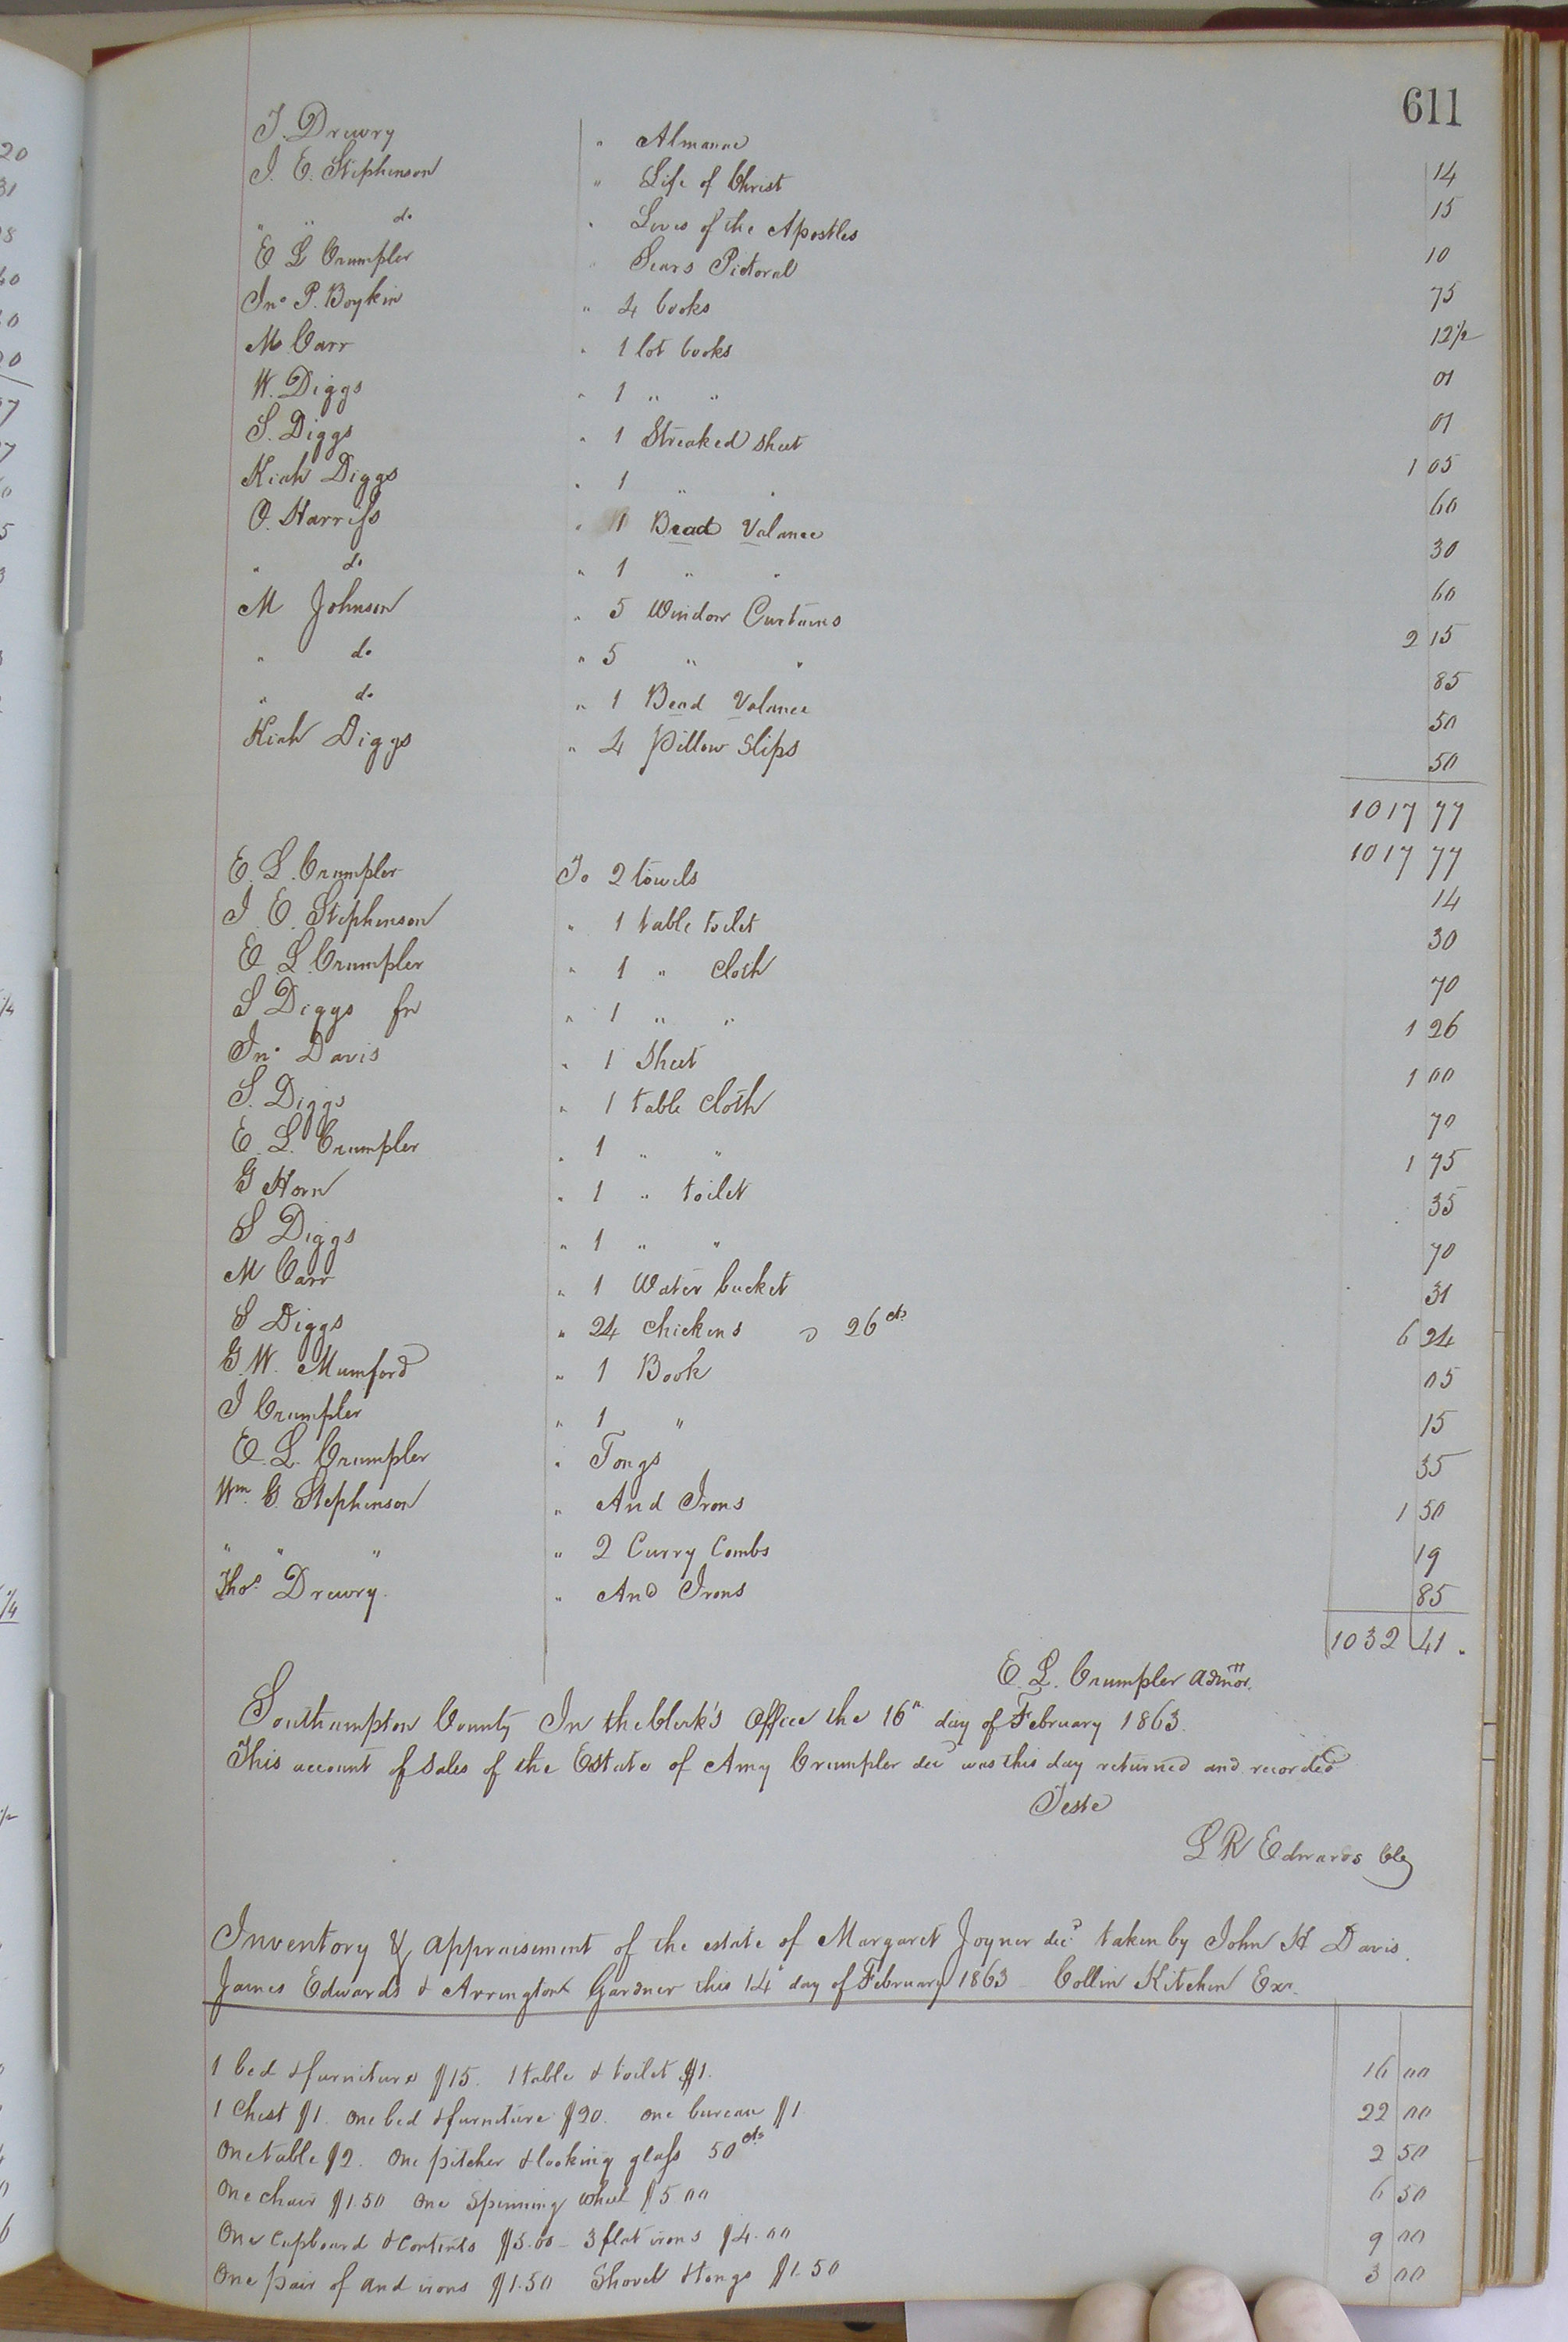 611
J. Drewry " Almanac 14
J. E. Stephenson " Life of Christ 15
" " do " Lives of the Apostles 10
E L Crumpler " Sears Pictoral 75
Jno P. Boykin " 4 books 12½
M Carr " 1 lot books 01
W. Diggs " 1 " " 01
S. Diggs " 1 Streaked sheet 1 05
Kiah Diggs " 1 " " 60
O. Harriss " 1 Bead Valance 30
" do " 1 " " 60
M Johnson " 5 Window Curtains 2 15
" do " 5 " " 85
" do " 1 Bead Valance 50
Kiah Diggs " 4 Pillow Slips 50
1017 77
1017 77
E. L. Crumpler To 2 towels 14
J. E. Stephenson " 1 table toilet 30
E. L. Crumpler " 1 " Cloth 70
S Diggs fn " 1 " " 1 26
Jno Davis " 1 Sheet 1 00
S. Diggs " 1 table Cloth 70
E. L. Crumpler " 1 " " 1 75
G Horn " 1 " toilet 35
S Diggs " 1 " " 70
M Carr " 1 Water bucket 31
S Diggs " 24 Chickens 26 cts 6 24
G. W. Mumford " 1 Book 05
J Crumpler " 1 " 15
E. L. Crumpler " Tongs 35
Wm G. Stephenson " And Irons 1 50
" " " " 2 Curry Combs 19
Thos Drewry " And Irons 85
1032 41.
E. L. Crumpler admor.
Southampton County In the Clerk's Office the 16" day of February 1863.
This account of sales of the Estate of Amy Crumpler decd was this day returned and recorded
Teste
L R Edwards Clk
Inventory & appraisement of the estate of Margaret Joyner decd taken by John H Davis
James Edwards & Arrington Gardner this 14 day of February 1863 Collin Kitchen Exr.
1 bed & furniture $15. 1 table & toilet $1. 16 00
1 Chest $1. One bed & furniture $20. one bureau $1 22 00
One table $2. One pitcher & looking glass 50 cts 2 50
One chair $1.50 One Spinning Wheel $5 00 6 50
One Cupboard & contents $5.00 - 3 flat irons $4.00 9 00
One pair of and irons $1.50 Shovel & tongs $1.50 3 00